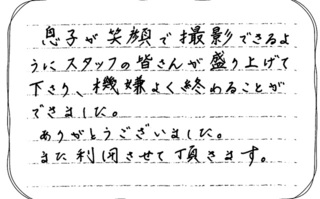 息子が笑顔で撮影できるよ
うにスタッフの皆さんが盛り上げて
下さり、機嫌よく終わることが
できました。
ありがとうございました。
また利用させて頂きます。